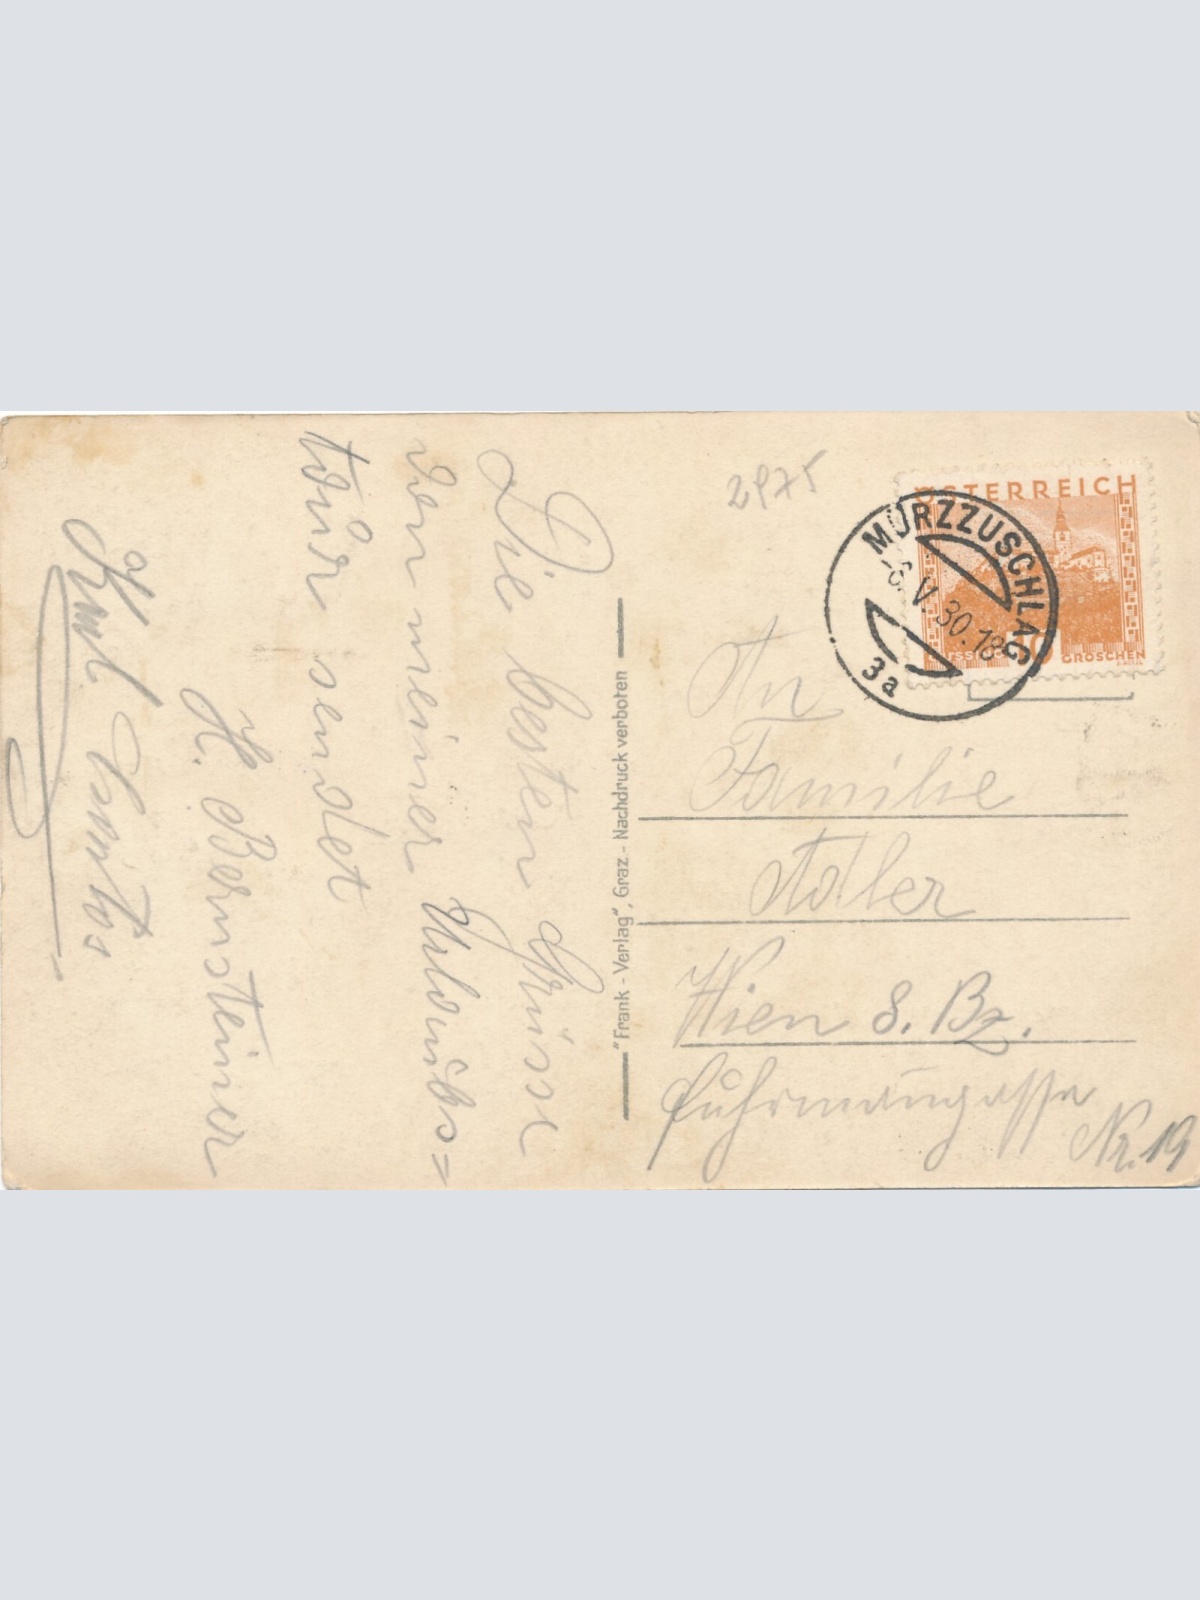 Die besten Grüsse
von meiner Urlaubs=
tour sendet
H. Bernsteiner
Karl
"Frank - Verlag", Graz - Nachdruck verboten
2975
ÖSTERREICH
GROSCHEN
MÜRZZUSCHLAG
-6. V 30. 18
3a
An
Familie
Adler
Wien 8. Bz.
Fuhrmanngasse
Nr. 19